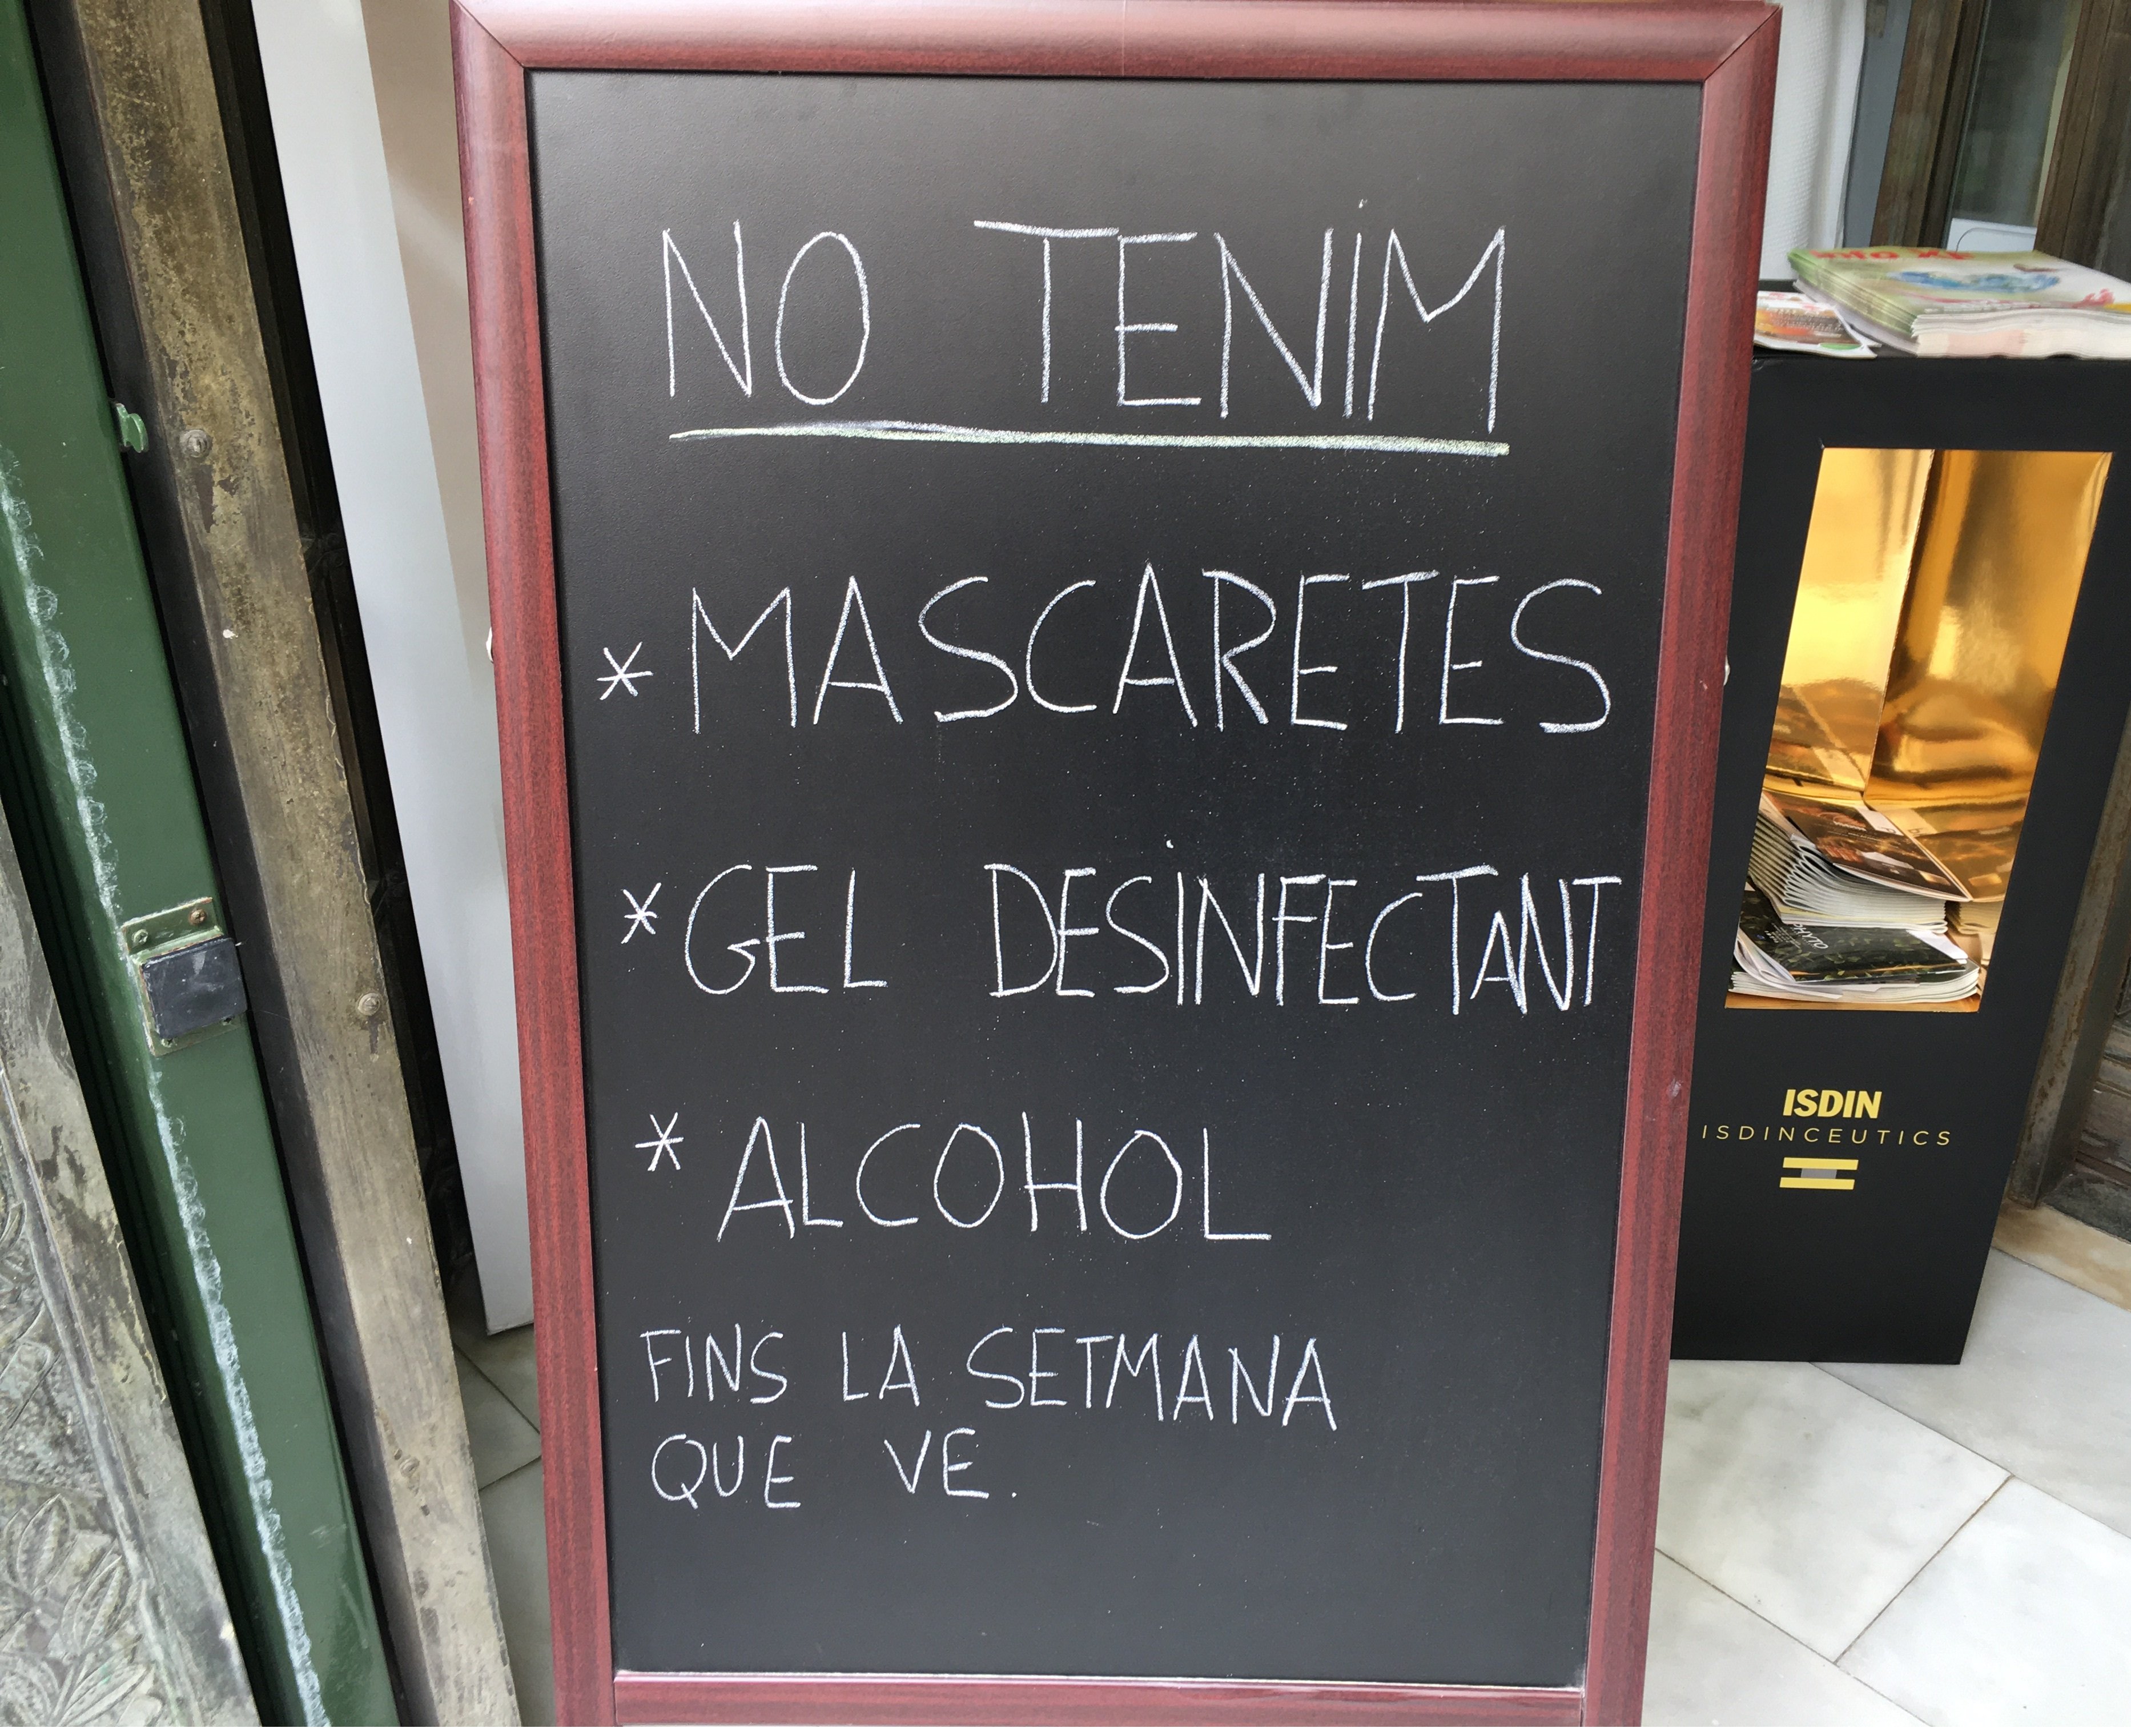 NO TENiM
* MASCARETES
* GEL DESiNFECTANT
* ALCOHOL
FINS LA SETMANA
QUE VE.
ISDIN
ISDINCEUTICS